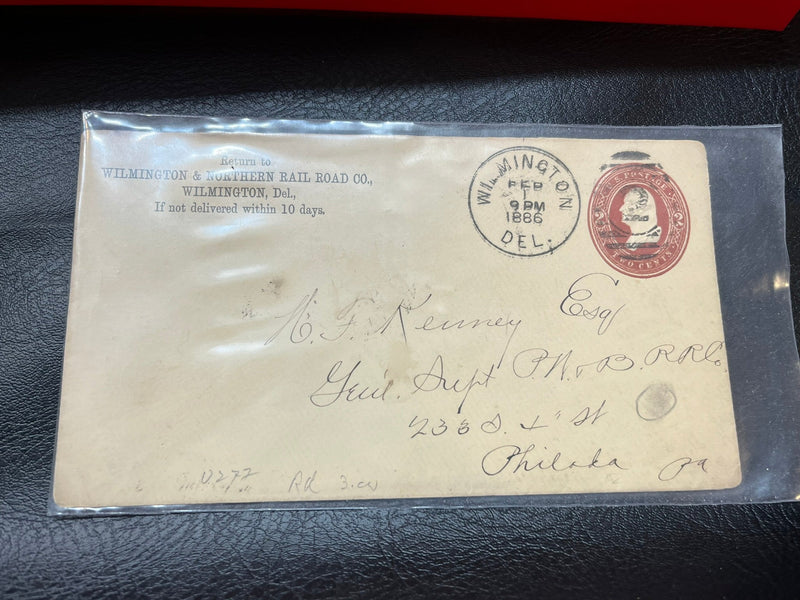 Return to
WILMINGTON & NORTHERN RAIL ROAD CO.,
WILMINGTON, Del.,
If not delivered within 10 days.
WILMINGTON
FEB
1
9 PM
1886
DEL.
U.S. POSTAGE
TWO CENTS
H. F. Kenney Esq
Genl. Supt P. W. & B. R R Co.
233 S. 4" St
Philada Pa
U277 Rd 3.00